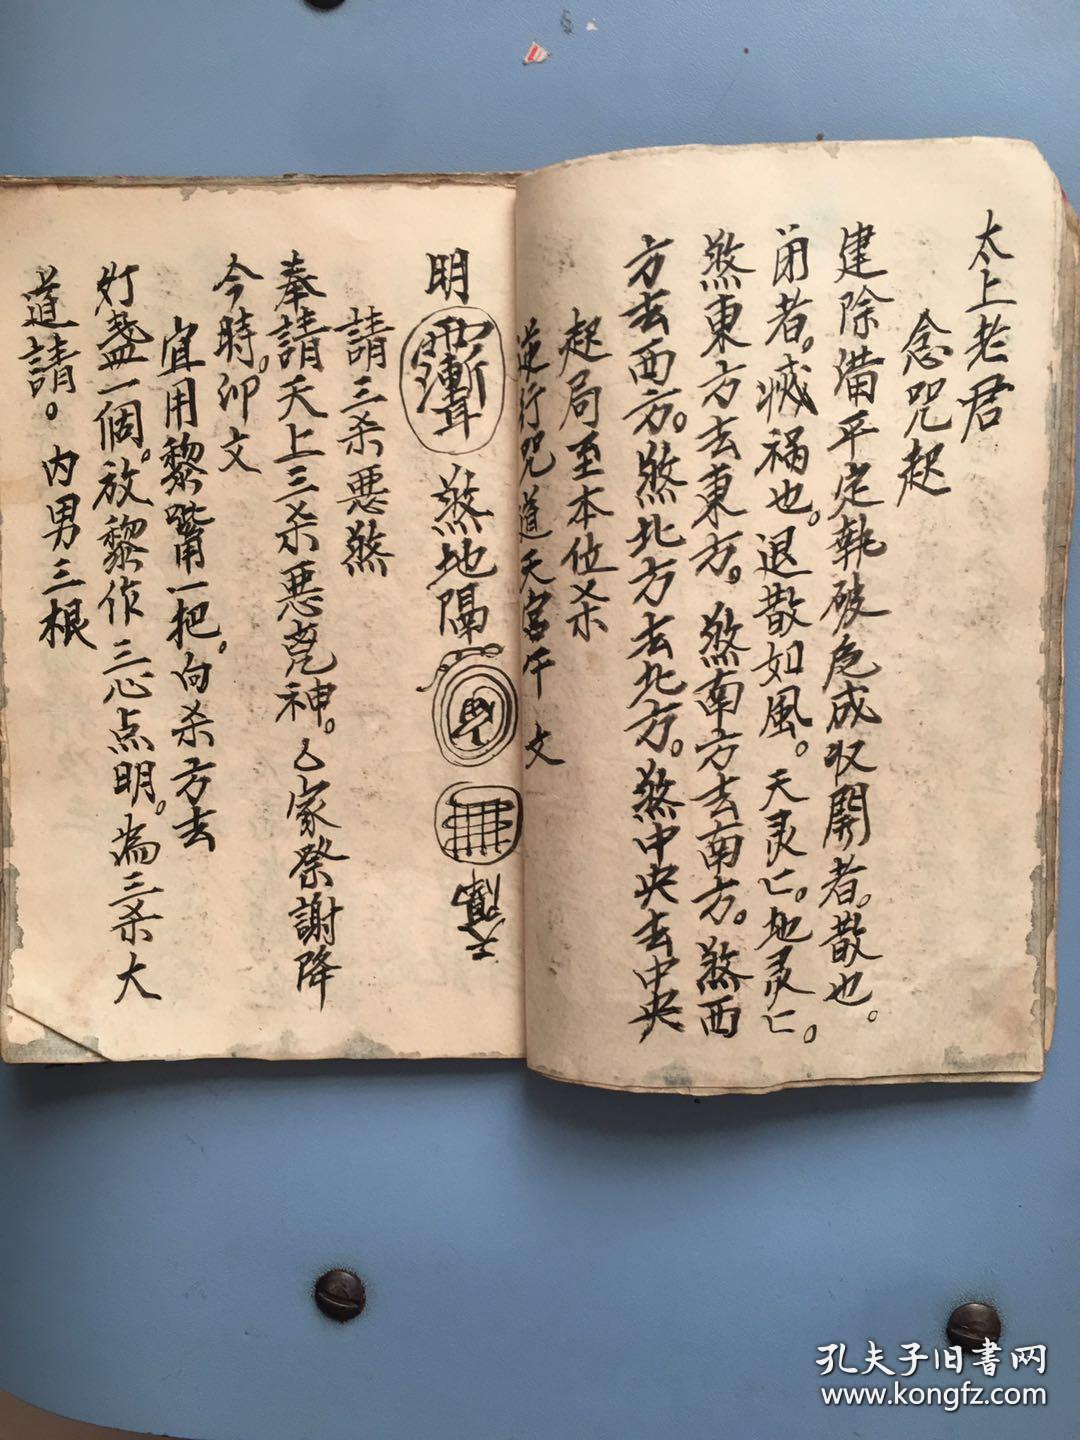 太上老君
念咒起
建除满平定執破危成收開者。散也。
闭者。滅祸也。退散如風。天灵匕。地灵匕。
煞東方去東方。煞南方去南方。煞西
方去西方。煞北方去北方。煞中央去中央
起局至本位杀
逆行咒道天宫午 文
明 煞地隔。
請三杀惡煞
奉請天上三杀惡神。家祭謝降
今時。卯文
宜用黎嘴一把。向杀方去
灯盏一個。放黎作三心点明。為三杀大
道請。 内男三根
孔夫子旧書网
www.kongfz.com